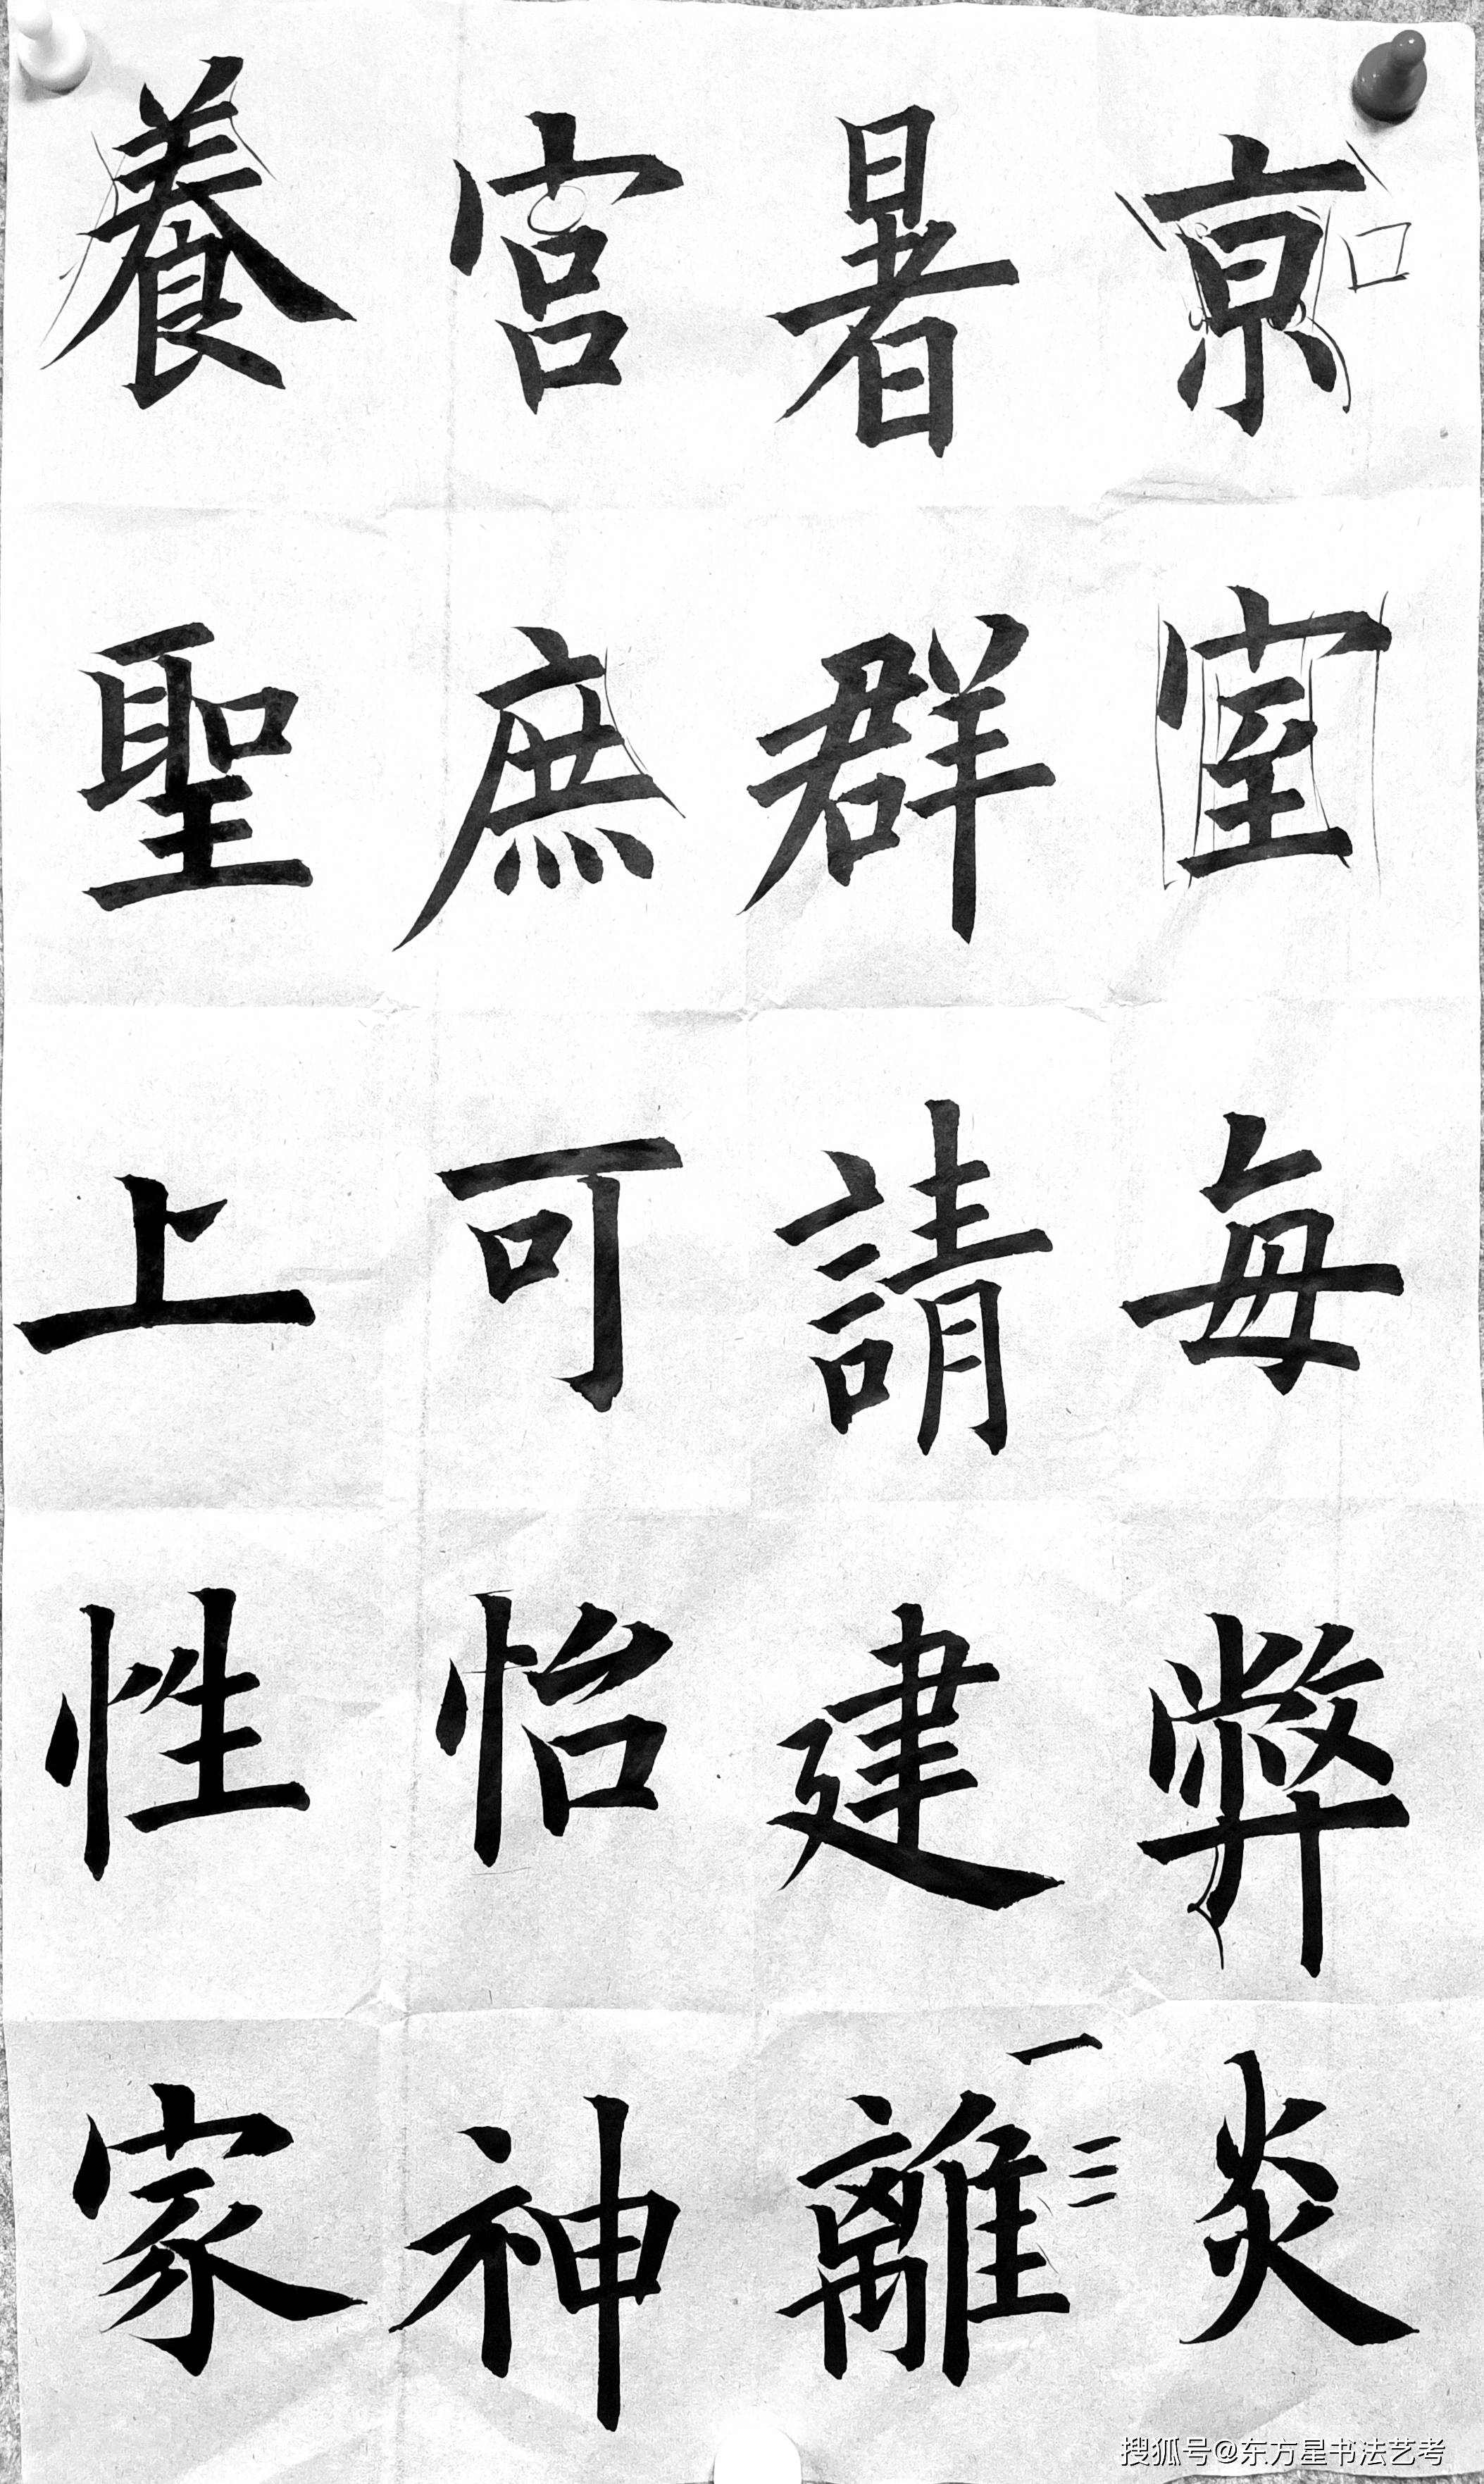 京室每弊炎
暑群請建離
宮庶可怡神
養聖上性家
搜狐号@东方星书法艺考